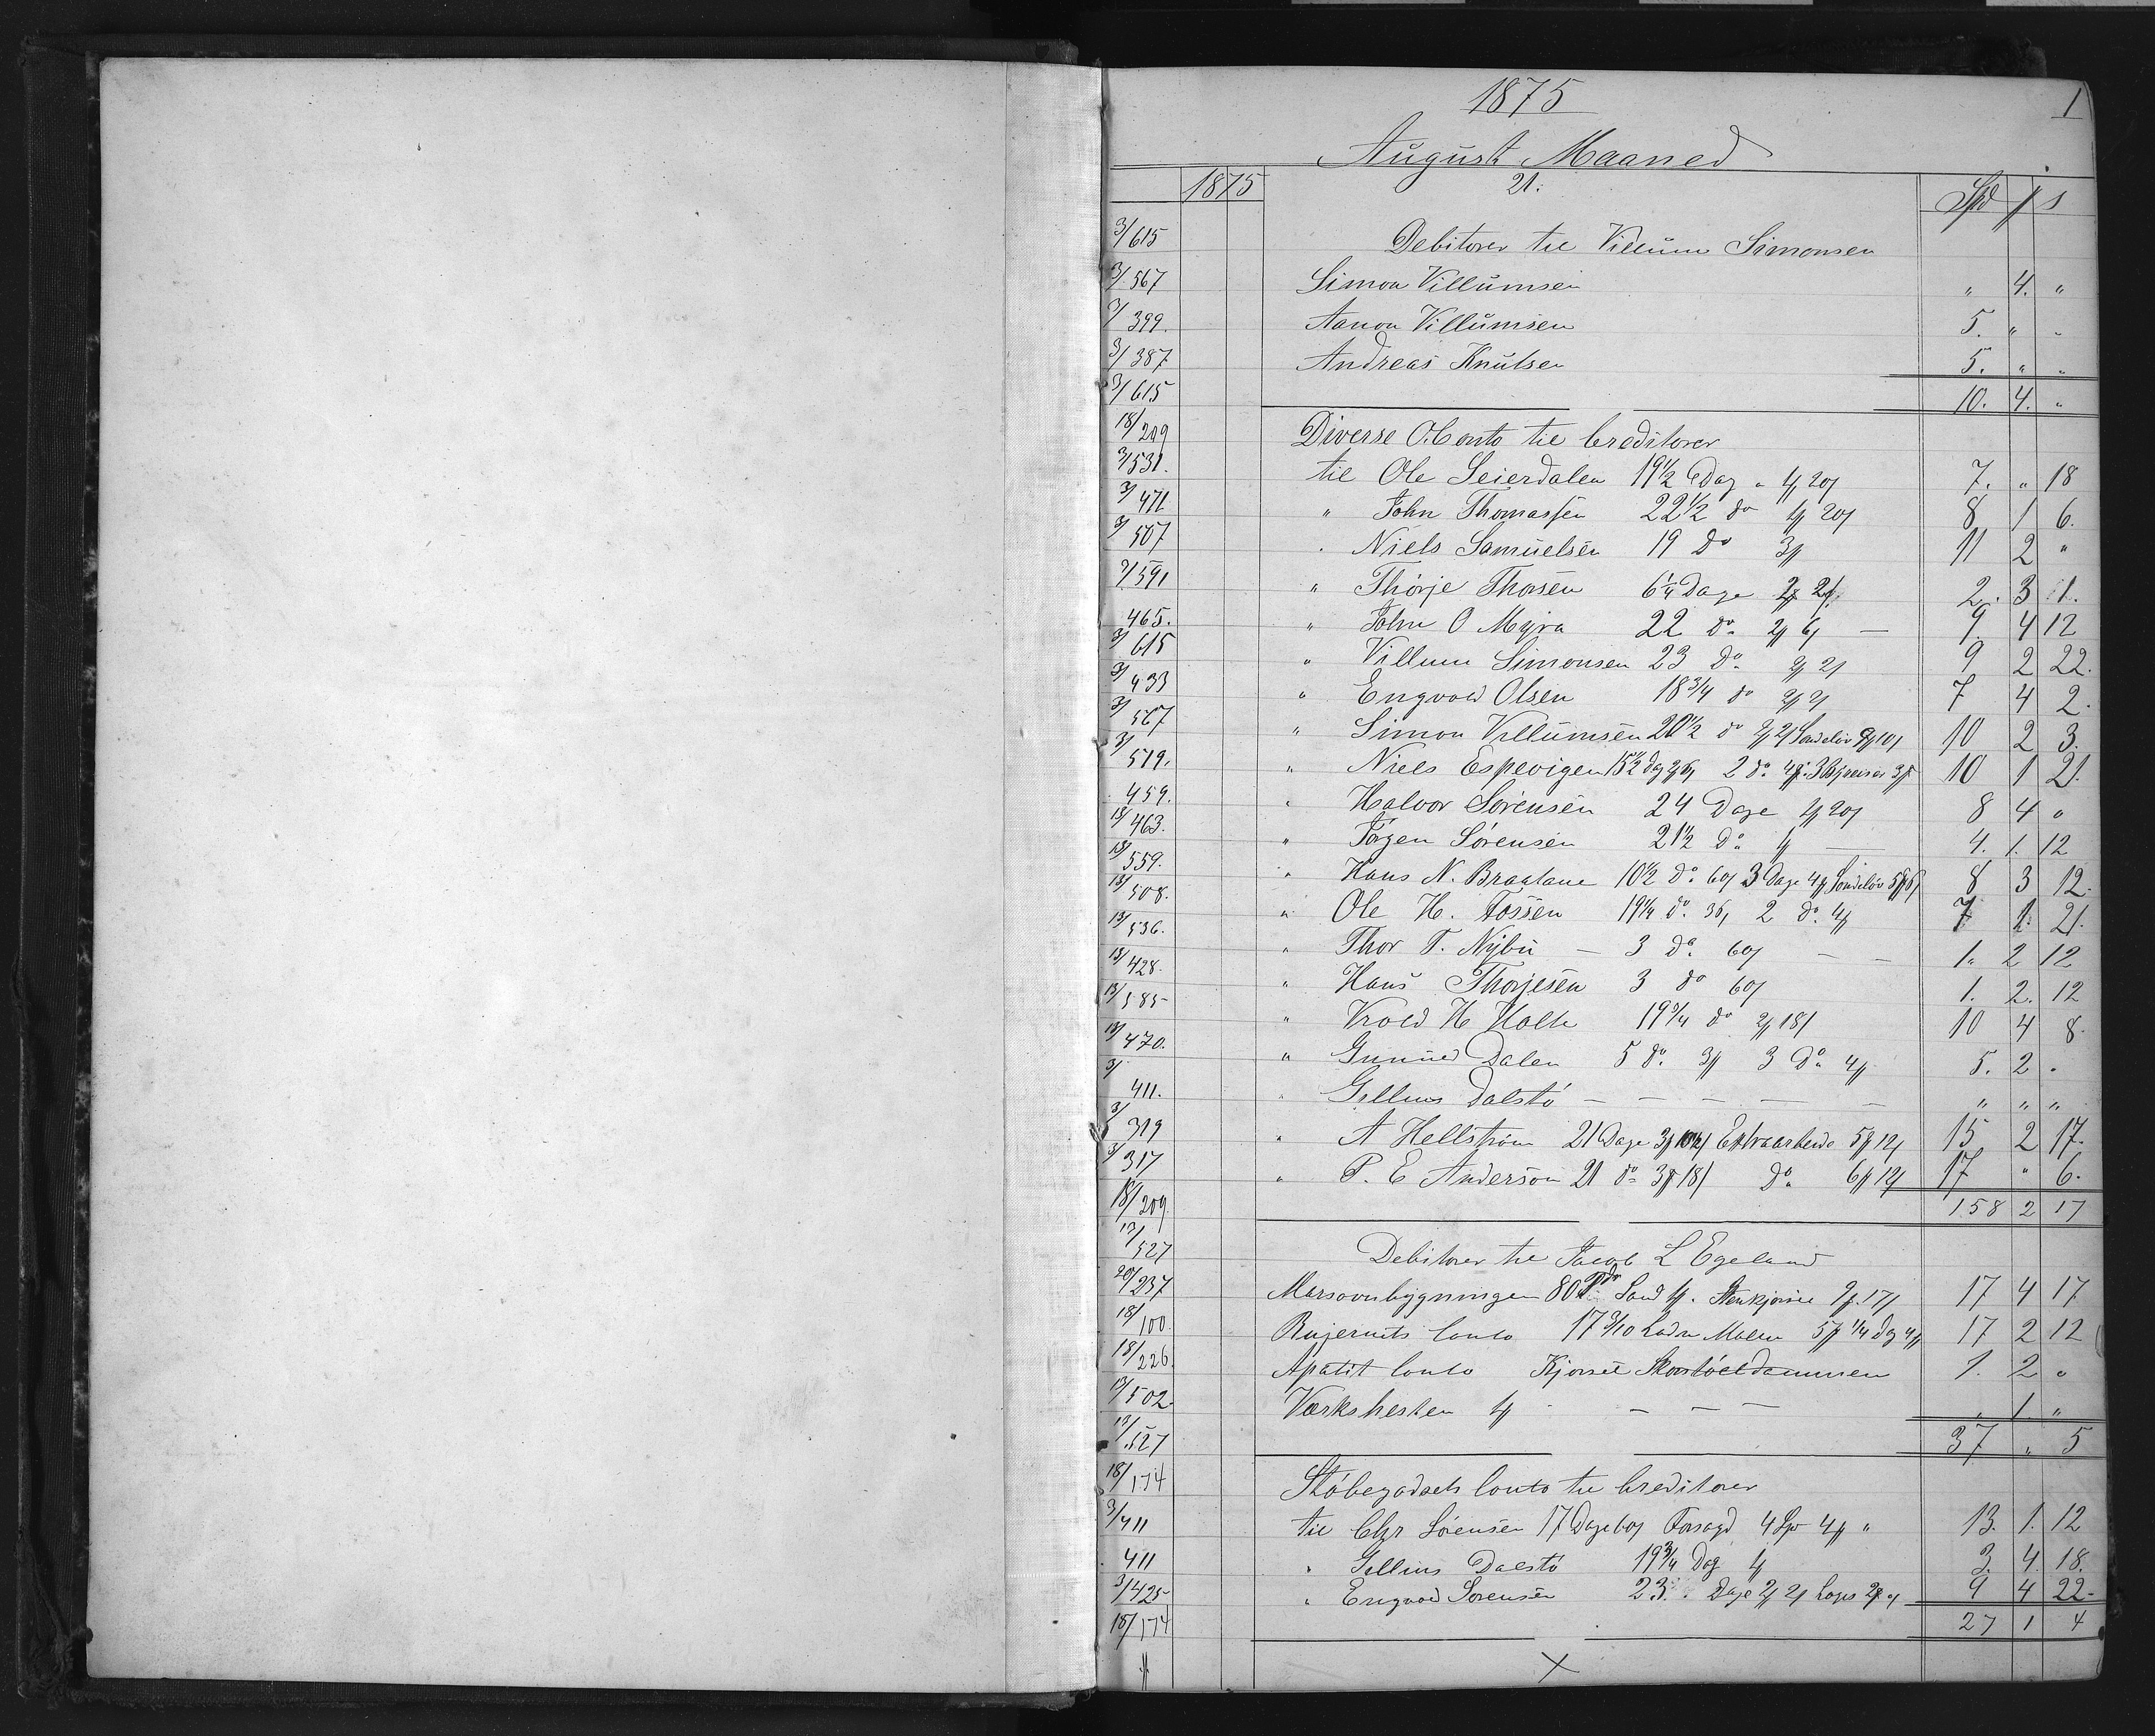 1875 1
August Maaned
1875 21. Spd s
3/615 Debitorer til Villum Simonsen
3/567 Simon Villumsen " 4. "
3/399. Aanon Villumsen 5. " "
3/387 Andreas Knutsen 5. " "
3/615 10. 4. "
18/209 Diverse O. Conto til Creditorer
3/531. til Ole Seierdalen 19 1/2 Dag 7. " 18
3/471 " John Thomassen 22 1/2 do 8 1 6.
3/507 " Niels Samuelsen 19 do 11 2 "
3/591 " Thorje Thorsen 6 1/4 Dage 2. 3 1.
465. " John O Myra 22 do 9. 4 12
3/615 " Villum Simonsen 23 do 9 2 22.
3/433 " Engvold Olsen 18 3/4 do 7 4 2.
3/567 " Simon Villumsen 20 1/2 do 10 2 3.
3/519. " Niels Espevigen 15 1/2 Dag 2 do 10 1 21.
459. " Halvor Sörensen 24 Dage 8 4 "
13/463. " Jörgen Sörensen 21 1/2 do 4. 1. 12
13/559. " Hans N. Braatane 10 1/2 do 3 Dage 8 3 12.
13/508. " Ole H. Fossen 19 1/4 do 2 do 7 1. 21.
13/536. " Thor T. Nybu 3 do 1. 2 12
13/428. " Hans Thorjesen 3 do 1. 2. 12
13/585 " Vrold H Holte 19 3/4 do 10 4 8
13/470. " Gunnud Dalen 5 do 3 do 5. 2 "
3/411. " Gellius Dalstö " " "
3/319 " A Hellström 21 Dage Extraarbeide 15 2 17.
3/317 " P. E Anderson 21 do do 17 " 6.
18/209 158 2 17
13/527 Debitorer til Jacob L Egeland
20/237 Marsovnbygningen 80 Sand 17 4 17
18/100 Rujernets Conto 17 3/10 Malm 17 2 12
18/226. Apatit Conto Kjörsel 1. 2 "
13/502 Værkshesten " 1. "
13/527 37 " 5
18/174 Stöbegodsets Conto til Creditorer
3/411 til Chr Sörensen 17 Dage 13. 1. 12
411 " Gellius Dalstö 19 3/4 Dag 3. 4. 18.
3/425 " Engvold Sörensen 23 Dage 9 4 22
18/174 27 1 4